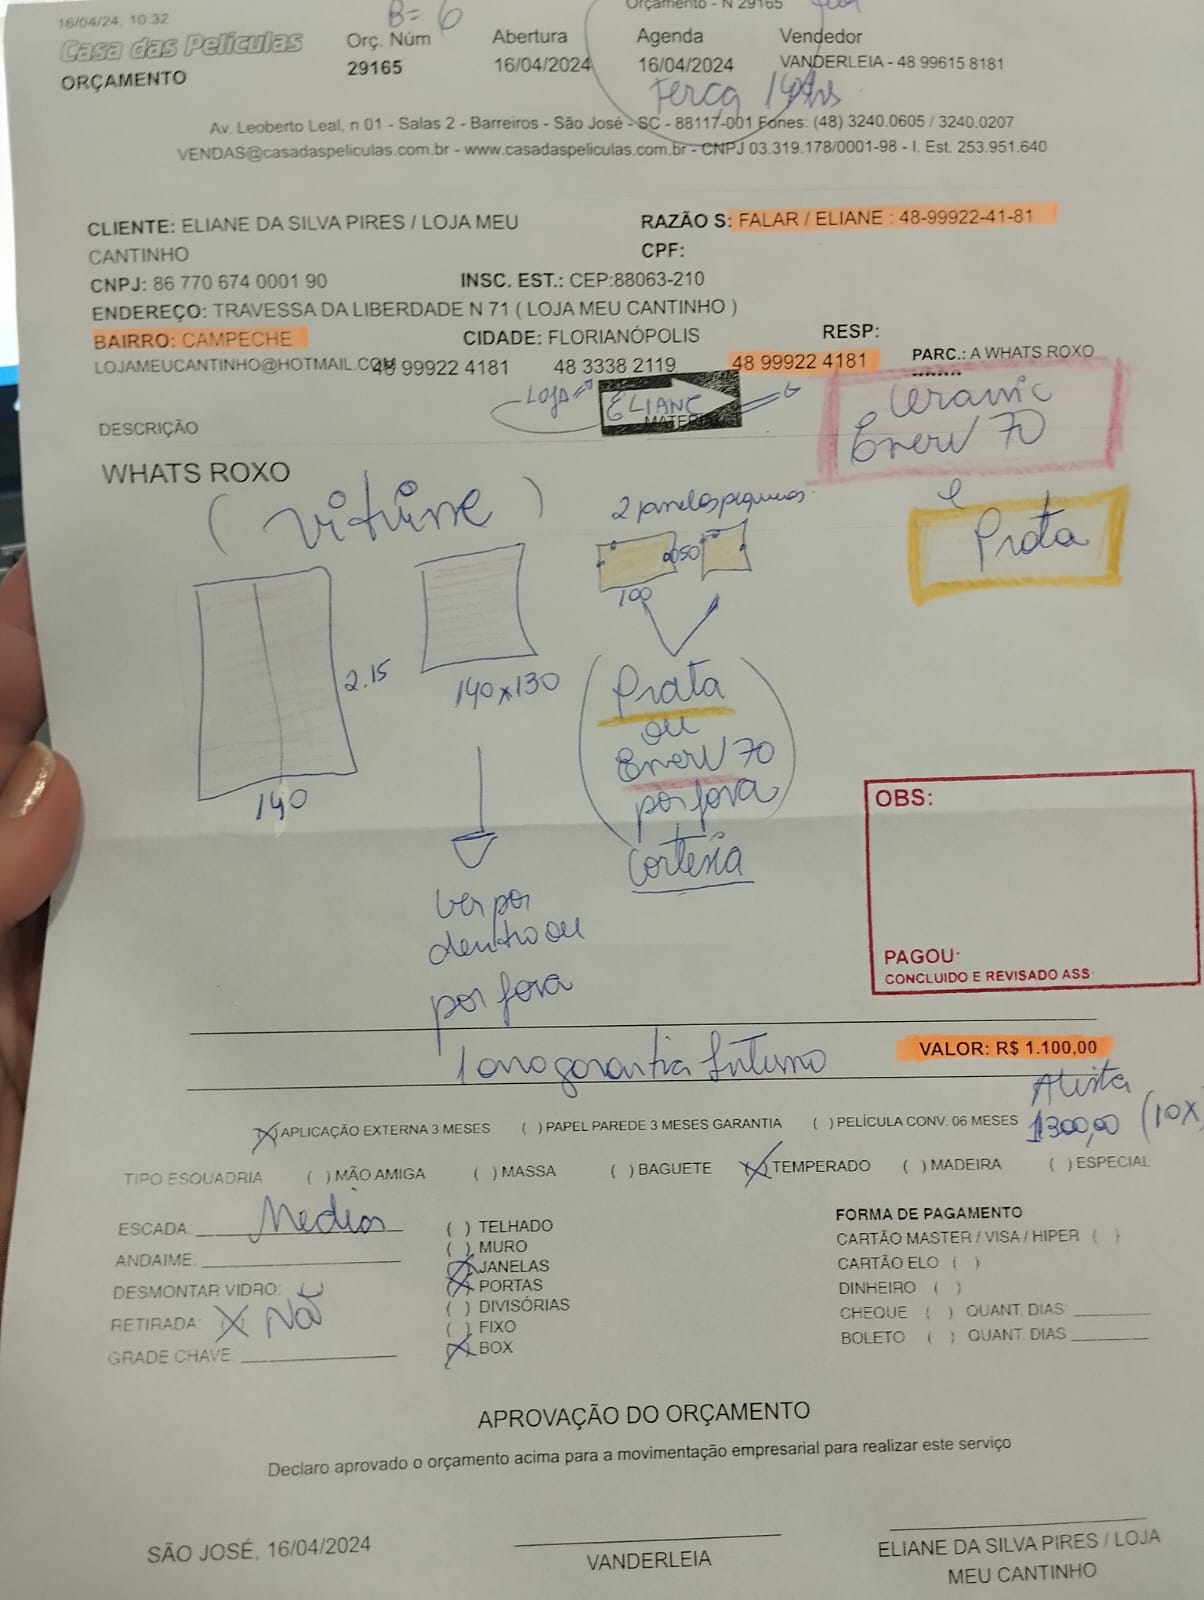 16/04/24, 10:32
B= 6
Orçamento - N 29165
Casa das Películas
ORÇAMENTO
Orç. Núm
29165
Abertura
16/04/2024
Agenda
16/04/2024
Terça 14hs
Vendedor
VANDERLEIA - 48 99615 8181
Av. Leoberto Leal, n 01 - Salas 2 - Barreiros - São José - SC - 88117-001 Fones: (48) 3240.0605 / 3240.0207
VENDAS@casadaspeliculas.com.br - www.casadaspeliculas.com.br - CNPJ 03.319.178/0001-98 - I. Est. 253.951.640
CLIENTE: ELIANE DA SILVA PIRES / LOJA MEU CANTINHO
RAZÃO S: FALAR / ELIANE : 48-99922-41-81
CPF:
CNPJ: 86 770 674 0001 90 INSC. EST.: CEP:88063-210
ENDEREÇO: TRAVESSA DA LIBERDADE N 71 ( LOJA MEU CANTINHO )
BAIRRO: CAMPECHE CIDADE: FLORIANÓPOLIS RESP:
LOJAMEUCANTINHO@HOTMAIL.COM 48 99922 4181 48 3338 2119 48 99922 4181 PARC.: A WHATS ROXO
LOJA ELIANE
Ceramic
Enerv 70
DESCRIÇÃO
WHATS ROXO
e
Prata
( vitrine )
2 janelas pequenas
050
100
2.15
140
140x130
Prata
ou
Enerv 70
por fora
Cortesia
ver por
dentro ou
por fora
OBS:
PAGOU
CONCLUIDO E REVISADO ASS
VALOR: R$ 1.100,00
1 ano garantia Interno
Avista
1300,00 (10X
(X) APLICAÇÃO EXTERNA 3 MESES ( ) PAPEL PAREDE 3 MESES GARANTIA ( ) PELÍCULA CONV. 06 MESES
TIPO ESQUADRIA ( ) MÃO AMIGA ( ) MASSA ( ) BAGUETE (X) TEMPERADO ( ) MADEIRA ( ) ESPECIAL
ESCADA: Media
ANDAIME:
DESMONTAR VIDRO:
RETIRADA: X Não
GRADE CHAVE:
( ) TELHADO
( ) MURO
(X) JANELAS
(X) PORTAS
( ) DIVISÓRIAS
( ) FIXO
(X) BOX
FORMA DE PAGAMENTO
CARTÃO MASTER / VISA / HIPER ( )
CARTÃO ELO ( )
DINHEIRO ( )
CHEQUE ( ) QUANT DIAS
BOLETO ( ) QUANT. DIAS
APROVAÇÃO DO ORÇAMENTO
Declaro aprovado o orçamento acima para a movimentação empresarial para realizar este serviço
SÃO JOSÉ, 16/04/2024
VANDERLEIA
ELIANE DA SILVA PIRES / LOJA
MEU CANTINHO